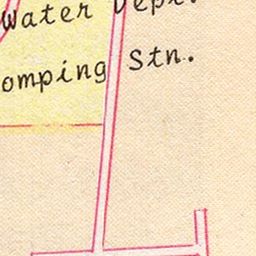 Water Dept.
omping Stn.